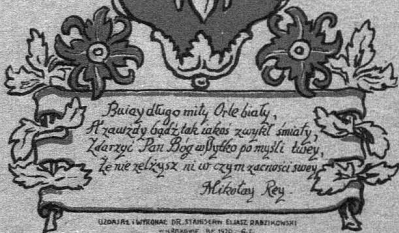 Buiay długo miły Orle biały,
A zawżdy bądź tak iakoś zwykł śmiały,
Zdarzyć Pan Bóg wszytko po myśli twey,
Że nie zelżysz ni w czym zacności swey.
Mikołay Rey
UŁOŻYŁ I WYKONAŁ DR. STANISŁAW ELJASZ RADZIKOWSKI
W KRAKOWIE